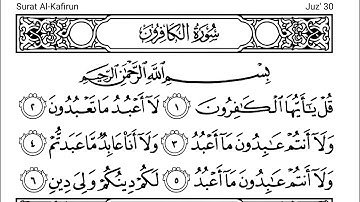 Surat Al-Kafirun Juz' 30
سُورَةُ الْكَافِرُونَ
بِسْمِ اللَّهِ الرَّحْمَٰنِ الرَّحِيمِ
قُلْ يَا أَيُّهَا الْكَافِرُونَ ١ لَا أَعْبُدُ مَا تَعْبُدُونَ ٢
وَلَا أَنتُمْ عَابِدُونَ مَا أَعْبُدُ ٣ وَلَا أَنَا عَابِدٌ مَّا عَبَدتُّمْ ٤
وَلَا أَنتُمْ عَابِدُونَ مَا أَعْبُدُ ٥ لَكُمْ دِينُكُمْ وَلِيَ دِينِ ٦